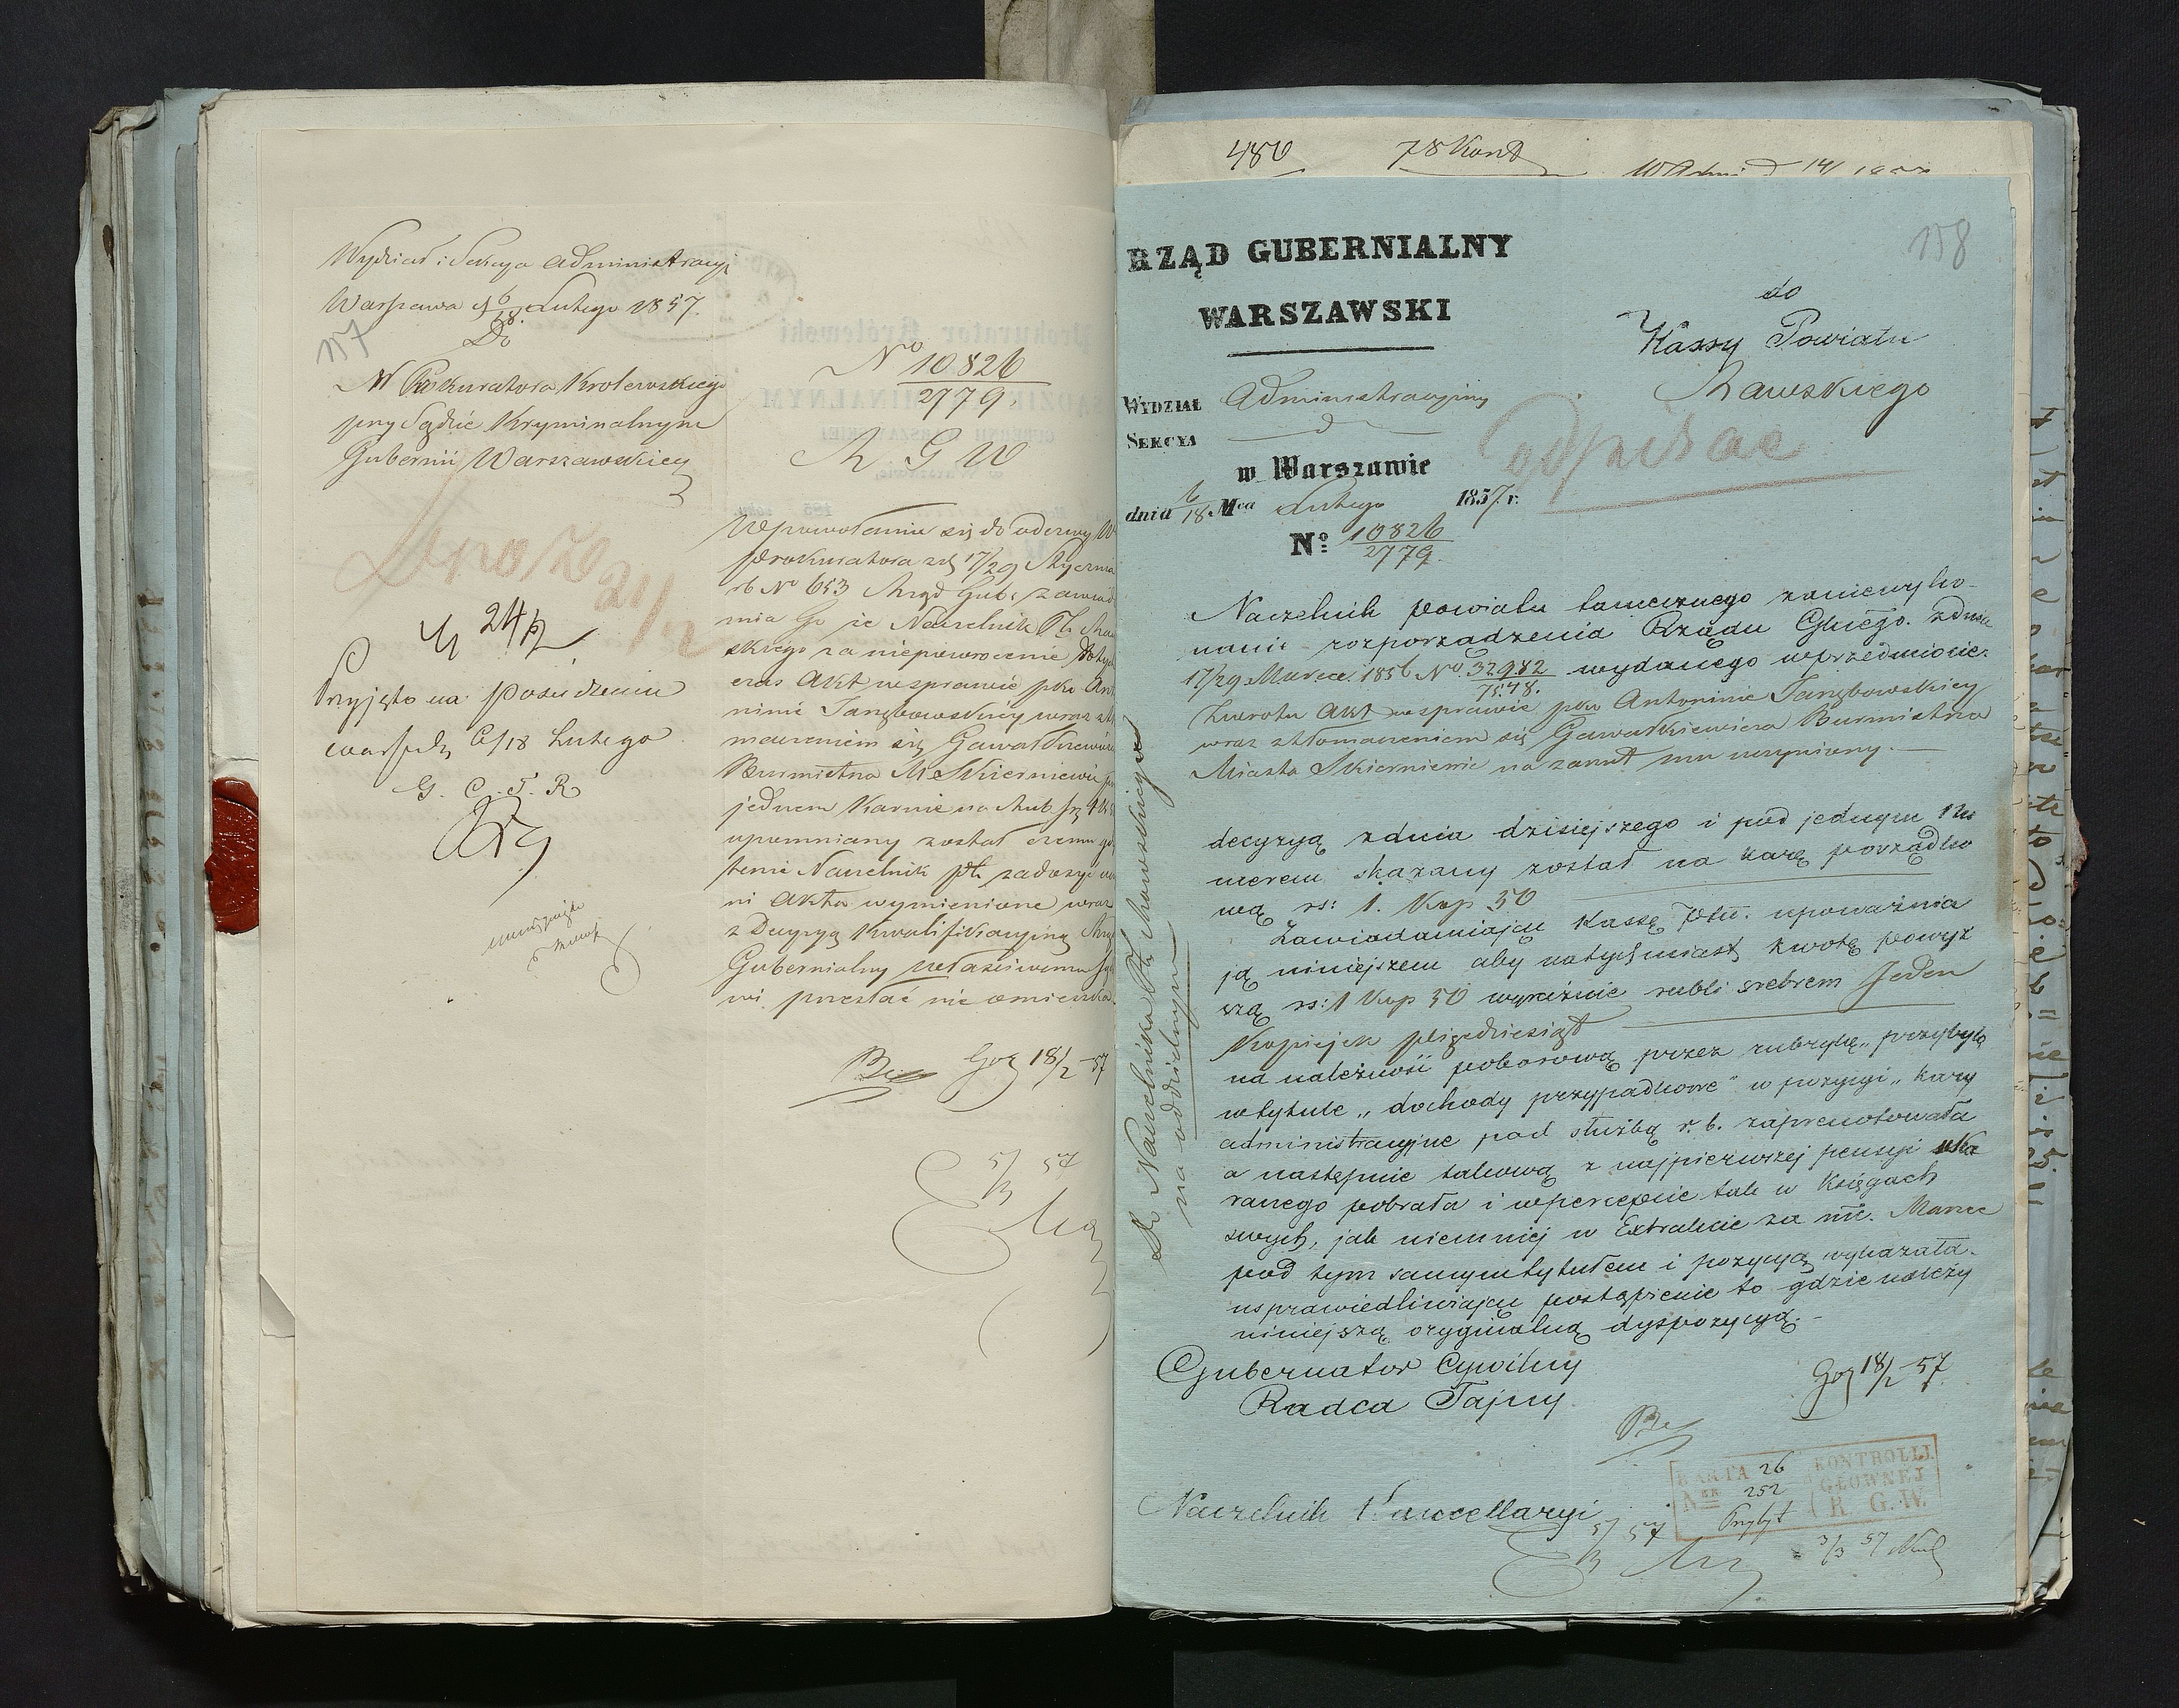 Wydział i Sekcya Administracyj
Warszawa d 6/18 Lutego 1857.
157
Do
W Prokuratora Krolewskiego
przy Sądzie Kryminalnym
Gubernii Warszawskiej
No 10826
2779.
R G W
W powołaniu się do odezwy W
Prokuratora z d 17/29 Stycznia
rb No 653 Rząd Gub: zawiad
mia Go że Naczelnik Ptu Raw
skiego za niepowrocenie dotych
czas Akt w sprawie pko Anto
ninie Tarzębowskiej wraz z tło
maczeniem się Gawatkiewicza
Burmistrza M Skierniewic
jednem karnie na Rub sr 1 k 5
upomniany został czemu gdy
tenże Naczelnik ptu zadosyć uczy
ni Akta wymienione wraz
z Decyzyą kwalifikacyjną Rząd
Gubernialny właściwemu Są
wi przesłać nie omieszka.
24/2
Przyjęto na posiedzeniu
6/18 Lutego
G. C. T. R
Goz 18/2 57
5/3 57
480
78 Kont
158
RZĄD GUBERNIALNY
WARSZAWSKI
do
Kassy Powiatu
Rawskiego
WYDZIAŁ Administracyjny
SEKCYA
odpisać
w Warszawie
dnia 6/18 Mca Lutego 1857 r.
No: 10826
2779.
Naczelnik powiatu tamecznego za niewyko-
nanie rozporządzenia Rządu Gbnego. z dnia
17/29 Marca 1856 No 32982/7548. wydanego w przedmiocie
zwrotu Akt w sprawie pko Antoninie Tarzębowskiej
wraz z tłomaczeniem się Gawatkiewicza Burmistrza
Miasta Skierniewic na zarzut mu uczyniony.
decyzyą z dnia dzisiejszego i pod jednym Nu
merem skazany został na karę porządko
wą rs: 1. Kop 50
Zawiadamiając Kassę Ptu. upoważnia
ją niniejszem aby natychmiast kwotę powyż
szą rs: 1 Kop 50 wyraźnie rubli srebrem Jeden
Kopiejek pięćdziesiąt
na należność poborową przez rubrykę „przybyło
w tytule „dochody przypadkowe" w pozycyi „kary
administracyjne pod służbą r. b. zaprenotowała
a następnie takową z najpierwszej pensyi uka
ranego pobrała i w percepcie tak w Księgach
swych, jak niemniej w Extrakcie za mc. Marzec
pod tym samym tytułem i pozycyą wykazała.
usprawiedliwiając postąpienie to gdzie należy
niniejszą oryginalną dyspozycyą.
Gubernator Cywilny
Radca Tajny
Goz 18/2 57.
Naczelnik Kancellaryi
5/3 57
KARTA 26 KONTROLLI
Ner 252 GŁÓWNEJ
Przybył R. G. W.
3/3 57
Do Naczelnika Ptu Rawskiego
na oddzielnym